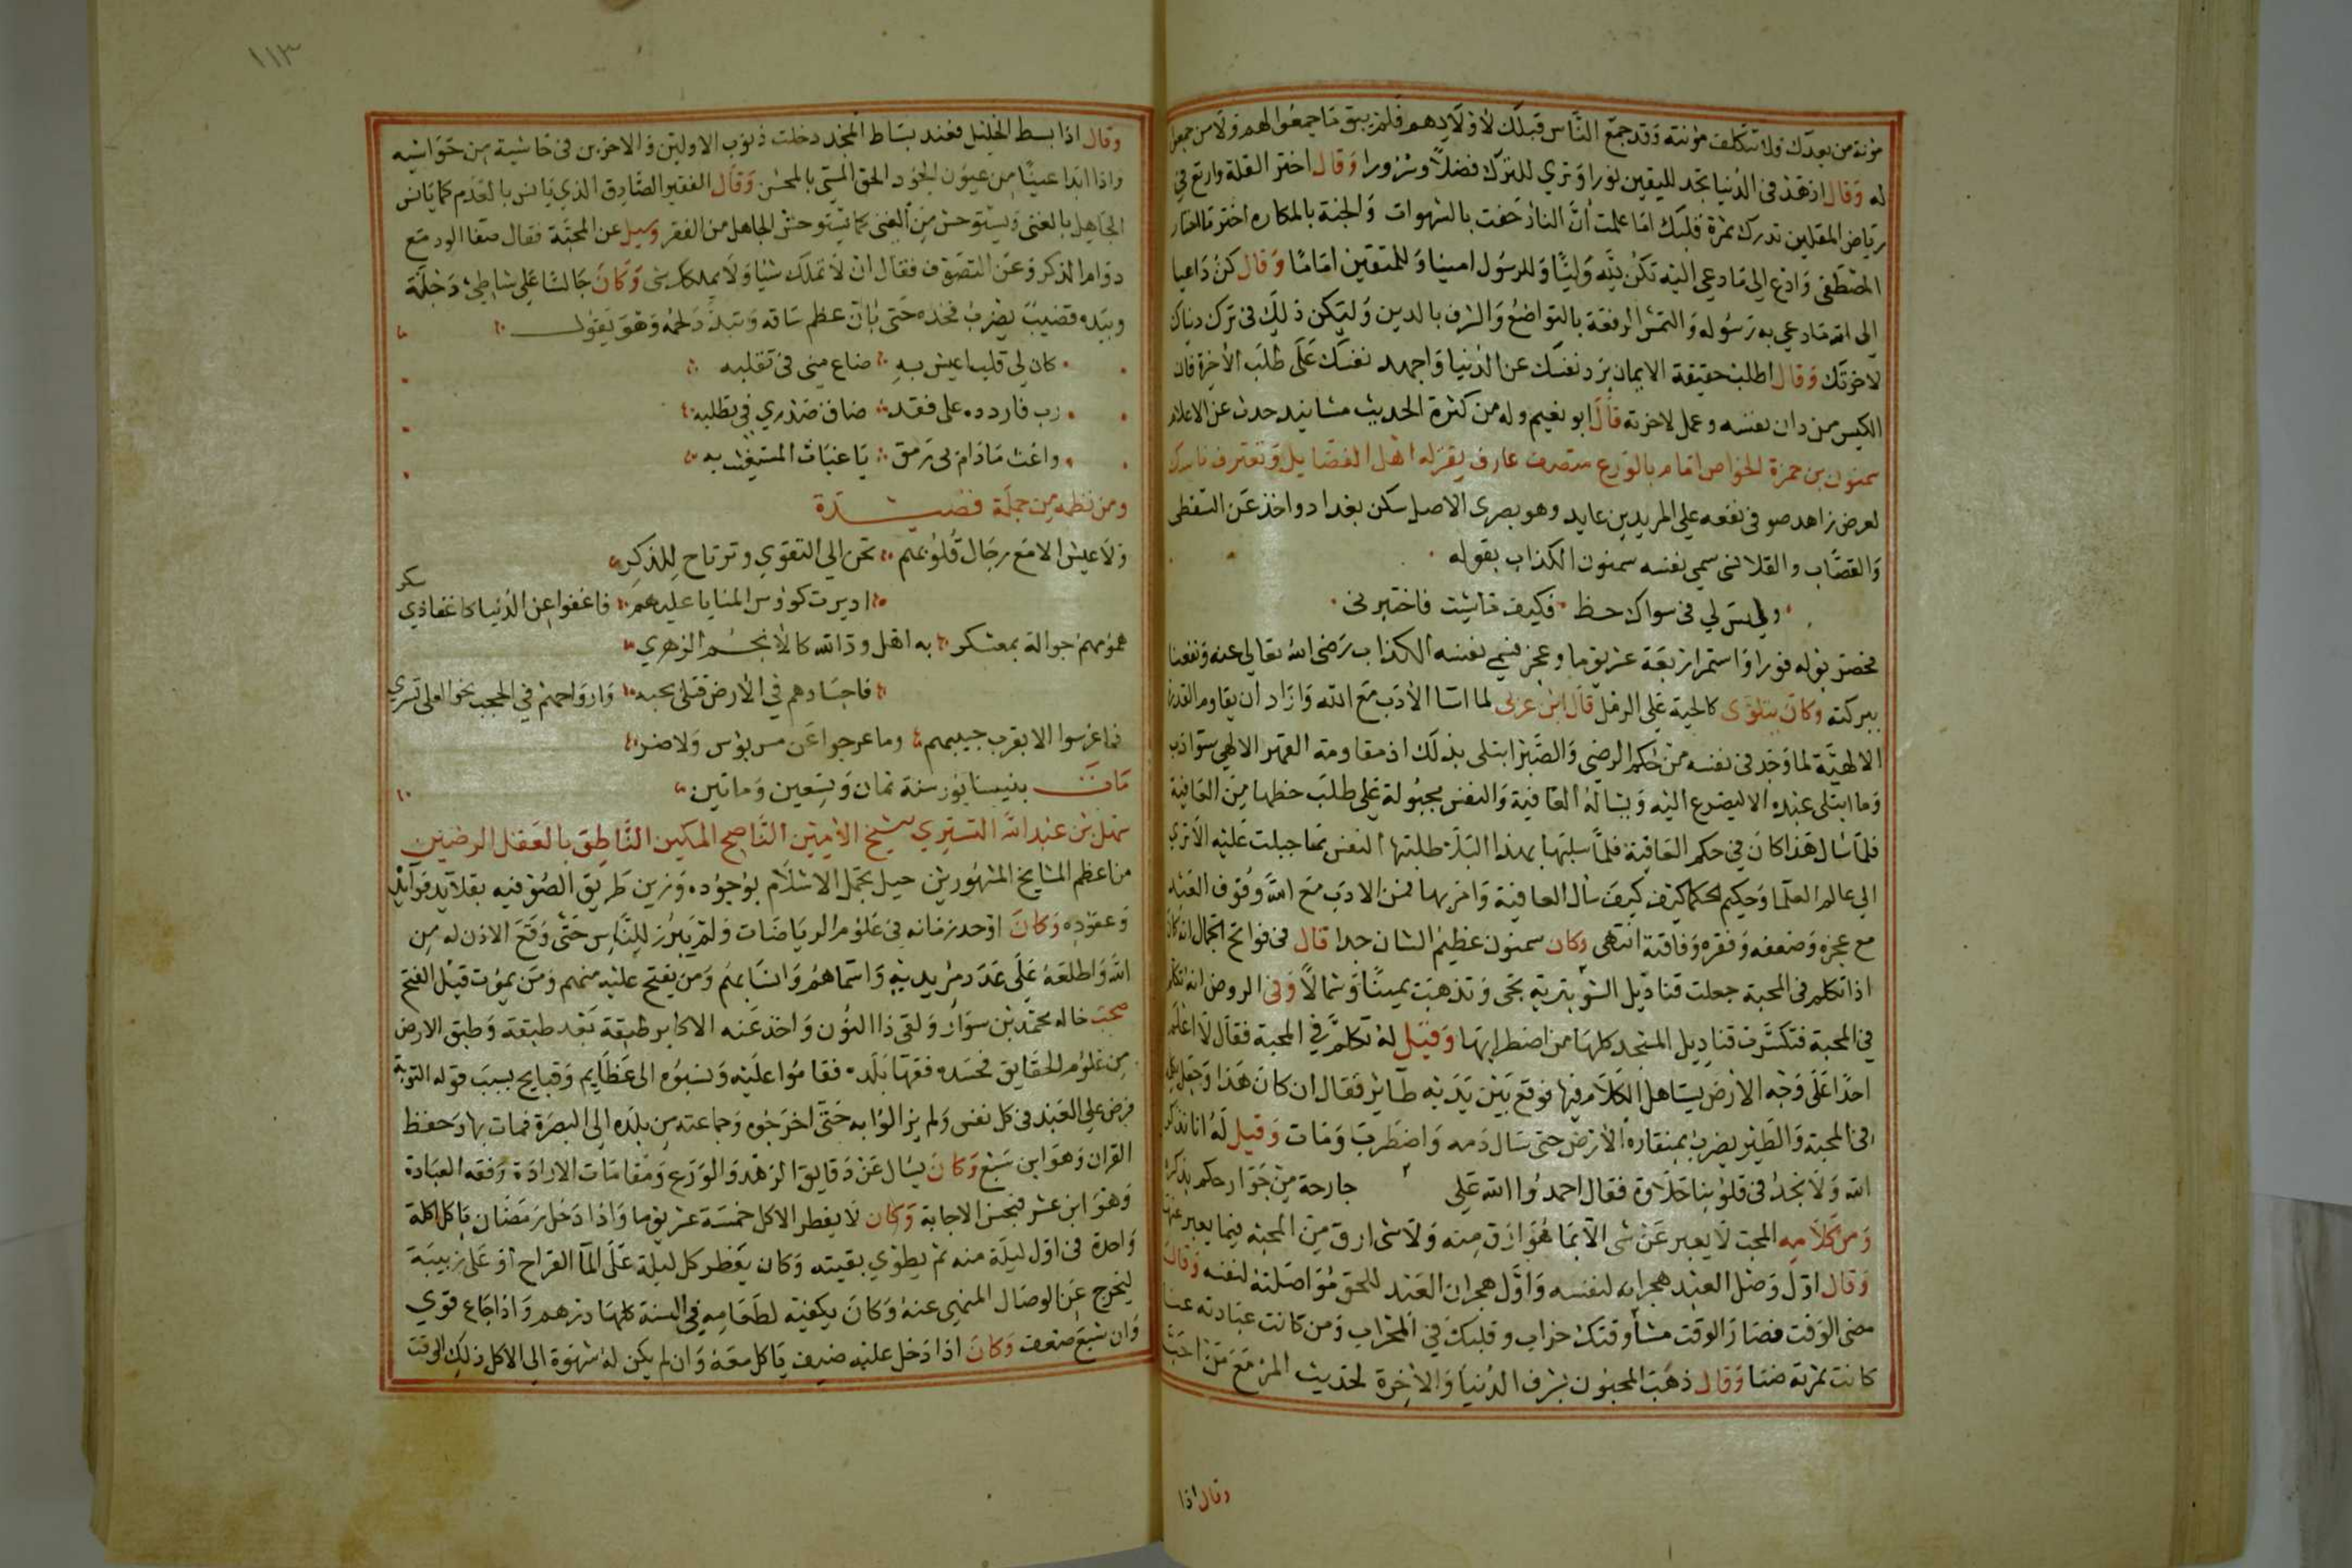 مؤنة من بعدك ولا تتكلف مؤنته وقد جمع الناس قبلك لاولادهم فلم يبق ما جمعوا لهم ولا من جمعوا
له وقال ازهد فى الدنيا تجد لليقين نورا وترى للترك فضلا وسرورا وقال اختر القلة وارتع في
رياض المقلين تدرك ثمرة قلبك اما علمت أن النار حفت بالشهوات والجنة بالمكاره اختر ما اختار
المصطفى وادع الى ما دعى اليه تكن لله وليا وللرسول امينا وللمتقين اماما وقال كن داعيا
الى الله ما دعى به رسوله والتمس الرفعة بالتواضع والشرف بالدين وليكن ذلك فى ترك دنياك
لاخرتك وقال اطلب حقيقة الايمان برد نفسك عن الدنيا واجهد نفسك على طلب الاخرة فان
الكيس من دان نفسه وعمل لاخرته قال ابو نعيم وله من كثرة الحديث مسانيد حدث عن الاعلام
سمنون بن حمزة الخواص امام بالورع متصرف عارف يقر له اهل الفضايل وتعترف ناسك
لعرض زاهد صوفى نفعه على المريدين عايد وهو بصرى الاصل سكن بغداد واخذ عن السقطى
والقصاب والقلانسى سمي نفسه سمنون الكذاب بقوله
وليس لي فى سواك حظ فكيف ما شيت فاختبرنى
فحصر بوله فورا واستمر اربعة عشر يوما وعجز فسمى نفسه الكذاب رضى الله تعالى عنه ونفعنا
ببركته وكان يتلوى كالحية على الرمل قال ابن عربى لما اسا الأدب مع الله واراد أن يقاوم القدرة
الالهية لما وجد فى نفسه من حكم الرضى والصبر ابتلى بذلك اذ مقاومة القهر الالهي سؤ ادب
وما ابتلى عبده الا ليضرع اليه ويسأله العافية والنفس مجبولة على طلب حظها من العافية
فلما سال هذا كان في حكم العافية فلما سلبها بهذا البلاء طلبتها النفس بما جبلت عليه الا ترى
الى عالم العلما وحكيم الحكما كيف كيف سأل العافية وامر بها فمن الادب مع الله وقوف العبد
مع عجزه وضعفه وفقره وفاقته انتهى وكان سمنون عظيم الشان جدا قال فى فواتح الجمال انه كان
اذا تكلم فى المحبة جعلت قناديل الشونيزية تجى وتذهب يمينا وشمالا وفى الروض انه تكلم
في المحبة فتكسرت قناديل المسجد كلها من اضطرابها وقيل له تكلم في المحبة فقال لا اعلم
احدا على وجه الارض يستاهل الكلام فيها فوقع بين يديه طاير فقال ان كان هذا وجعل يتكلم
فى المحبة والطير يضرب بمنقاره الأرض حتى سال دمه واضطرب ومات وقيل له انا نذكر
الله ولا نجد فى قلوبنا حلاوة فقال احمدوا الله على جارحة من جوارحكم بذكره
ومن كلامه المحب لا يعبر عن شى الا بما هو ارق منه ولا شى ارق من المحبة فيما يعبر عنها
وقال اول وصل العبد هجرانه لنفسه واول هجران العبد للحق مواصلته لنفسه وقال
مضى الوقت فصار الوقت مشأ وقتك خراب وقلبك في المحراب ومن كانت عبادته عنا
كانت ثمرته ضنا وقال ذهب المحبون بشرف الدنيا والاخرة لحديث المرء مع من احب
وقال اذا
١١٣
وقال اذا بسط الجليل فعند بساط المجد دخلت ذنوب الاولين والاخرين فى حاشية من حواشيه
واذا ابدا عينا من عيون الجود الحق المسي بالمحسن وقال الفقير الصادق الذي يانس بالعدم كما يانس
الجاهل بالغنى ويستوحش من الغنى كما يستوحش الجاهل من الفقر وسيل عن المحبة فقال صفا الود مع
دوام الذكر وعن التصوف فقال ان لا تملك شيا ولا يملكك شى وكان جالسا على شاطئ دجلة
وبيده قضيب يضرب فخذه حتى بان عظم ساقه وتبدد لحمه وهو يقول
كان لي قلب اعيش به ضاع مني فى تقلبه
رب فاردده على فقد ضاق صدري في تطلبه
واغث ما دام بى رمق يا غياث المستغيث به
ومن نظمه من جملة قصيدة
ولا عيش الا مع رجال قلوبهم تحن الى التقوي وترتاح للذكر
اديرت كؤوس المنايا عليهم فاغفوا عن الدنيا كاغفا ذي سكر
همومهم جوالة بمعسكر به اهل ود الله كالانجم الزهري
فاجسادهم في الأرض قتلى بحبه وارواحهم في الحجب نحو العلى تسري
فما عرسوا الا بقرب حبيبهم وما عرجوا عن مس بؤس ولا ضر
مات بنيسابور سنة ثمان وتسعين وماتين
سهل بن عبد الله التستري شيخ الامين الناصح المكين الناطق بالعقل الرصين
من اعظم المشايخ المشهورين حيل تجمل الاسلام بوجوده وزين طريق الصوفيه بقلايد فرايده
وعقوده وكان اوحد زمانه فى علوم الرياضات ولم يبرز للناس حتى وقع الاذن له من
الله واطلعه على عدد مريديه واسماهم وانسابهم ومن يفتح عليه منهم ومن يموت قبل الفتح
صحب خاله محمد بن سوار ولقى ذا النون واخذ عنه الاكابر طبقة بعد طبقة وطبق الارض
من علوم الحقايق فحسده فقها بلده فقاموا عليه ونسبوه الى عظايم وقبايح بسبب قوله التوبة
فرض على العبد فى كل نفس ولم يزالوا به حتى اخرجوه وجماعته من بلده الى البصرة فمات بها وحفظ
القران وهو ابن سبع وكان يسال عن دقايق الزهد والورع ومقامات الارادة وفقه العبادة
وهو ابن عشر فيحسن الاجابة وكان لا يفطر الاكل خمسة عشر يوما واذا دخل رمضان ياكل اكلة
واحدة فى اول ليلة منه ثم يطوي بقيته وكان يفطر كل ليلة على الما القراح او على زبيبة
ليخرج عن الوصال المنهى عنه وكان يكفيه لطعامه في السنة كلها درهم واذا جاع قوي
وان شبع ضعف وكان اذا دخل عليه ضيف ياكل معه وان لم يكن له شهوة الى الاكل ذلك الوقت